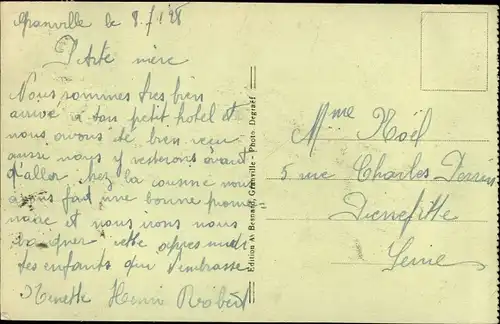 Granville le 8/7/28
P'tite mère
Nous sommes très bien
arrivé à ton petit hotel et
nous avons été bien reçu
aussi nous y resterons avant
d'aller chez la cousine nous
avons fait une bonne prome
nade et nous irons nous
baigner cette apres midi
tes enfants qui t'embrasse
Ninette Henri Robert
Edition A. Besnard, Granville - Photo. Degraët
Mme Noël
5 rue Charles Perrin
Pierrefitte
Seine